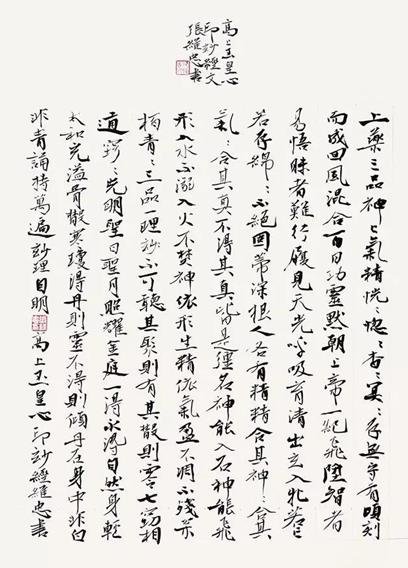 高上玉皇心
印妙經文
張維忠書
上藥三品神与氣精恍〻惚〻杳〻冥〻存無守有頃刻
而成回風混合百日功靈默朝上帝一紀飛陞智者
易悟昧者難行履見天光呼吸育清出玄入牝若亡
若存綿〻不絕固蒂深根人各有精精合其神〻合其
氣〻合其真不得其真皆是强名神能入石神能飛
形入水不溺入火不焚神依形生精依氣盈不凋不殘松
柏青〻三品一理妙不可聽其聚則有其散則零七竅相
通竅〻光明聖日聖月照耀金庭一得永得自然身輕
太和充溢骨散寒瓊得丹則靈不得則傾丹在身中非白
非青誦持萬遍妙理自明 高上玉皇心印妙經維忠書